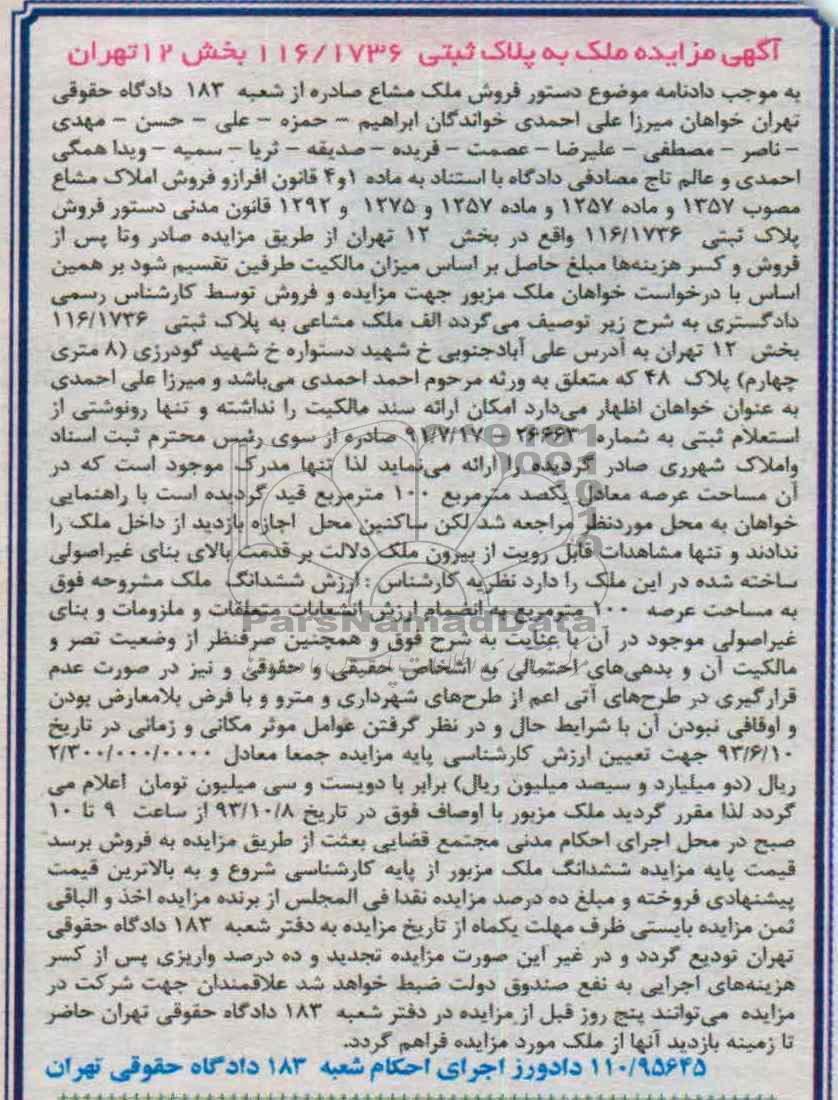 آگهی مزایده ملک به پلاک ثبتی ۱۱۶/۱۷۳۶ بخش ۱۲ تهران
به موجب دادنامه موضوع دستور فروش ملک مشاع صادره از شعبه ۱۸۳ دادگاه حقوقی
تهران خواهان میرزا علی احمدی خواندگان ابراهیم – حمزه – علی – حسن – مهدی
– ناصر – مصطفی – علیرضا – عصمت – فریده – صدیقه – ثریا – سمیه – ویدا همگی
احمدی و عالم تاج مصادفی دادگاه با استناد به ماده ۱و۴ قانون افرازو فروش املاک مشاع
مصوب ۱۳۵۷ و ماده ۱۲۵۷ و ماده ۱۲۵۷ و ۱۲۷۵ و ۱۲۹۲ قانون مدنی دستور فروش
پلاک ثبتی ۱۱۶/۱۷۳۶ واقع در بخش ۱۲ تهران از طریق مزایده صادر وتا پس از
فروش و کسر هزینه‌ها مبلغ حاصل بر اساس میزان مالکیت طرفین تقسیم شود بر همین
اساس با درخواست خواهان ملک مزبور جهت مزایده و فروش توسط کارشناس رسمی
دادگستری به شرح زیر توصیف می‌گردد الف ملک مشاعی به پلاک ثبتی ۱۱۶/۱۷۳۶
بخش ۱۲ تهران به آدرس علی آبادجنوبی خ شهید دستواره خ شهید گودرزی (۸ متری
چهارم) پلاک ۴۸ که متعلق به ورثه مرحوم احمد احمدی می‌باشد و میرزا علی احمدی
به عنوان خواهان اظهار می‌دارد امکان ارائه سند مالکیت را نداشته و تنها رونوشتی از
استعلام ثبتی به شماره ۲۶۶۶۳ – ۹۱/۷/۱۷ صادره از سوی رئیس محترم ثبت اسناد
واملاک شهرری صادر گردیده را ارائه می‌نماید لذا تنها مدرک موجود است که در
آن مساحت عرصه معادل یکصد مترمربع ۱۰۰ مترمربع قید گردیده است با راهنمایی
خواهان به محل موردنظر مراجعه شد لکن ساکنین محل اجازه بازدید از داخل ملک را
ندادند و تنها مشاهدات قابل رویت از بیرون ملک دلالت بر قدمت بالای بنای غیراصولی
ساخته شده در این ملک را دارد نظریه کارشناس : ارزش ششدانگ ملک مشروحه فوق
به مساحت عرصه ۱۰۰ مترمربع به انضمام ارزش انشعابات متعلقات و ملزومات و بنای
غیراصولی موجود در آن با عنایت به شرح فوق و همچنین صرفنظر از وضعیت تصر و
مالکیت آن و بدهی‌های احتمالی به اشخاص حقیقی و حقوقی و نیز در صورت عدم
قرارگیری در طرح‌های آتی اعم از طرح‌های شهرداری و مترو و با فرض بلامعارض بودن
و اوقافی نبودن آن با شرایط حال و در نظر گرفتن عوامل موثر مکانی و زمانی در تاریخ
۹۳/۶/۱۰ جهت تعیین ارزش کارشناسی پایه مزایده جمعا معادل ۲/۳۰۰/۰۰۰/۰۰۰۰
ریال (دو میلیارد و سیصد میلیون ریال) برابر با دویست و سی میلیون تومان اعلام می
گردد لذا مقرر گردید ملک مزبور با اوصاف فوق در تاریخ ۹۳/۱۰/۸ از ساعت ۹ تا ۱۰
صبح در محل اجرای احکام مدنی مجتمع قضایی بعثت از طریق مزایده به فروش برسد
قیمت پایه مزایده ششدانگ ملک مزبور از پایه کارشناسی شروع و به بالاترین قیمت
پیشنهادی فروخته و مبلغ ده درصد مزایده نقدا فی المجلس از برنده مزایده اخذ و الباقی
ثمن مزایده بایستی ظرف مهلت یکماه از تاریخ مزایده به دفتر شعبه ۱۸۳ دادگاه حقوقی
تهران تودیع گردد و در غیر این صورت مزایده تجدید و ده درصد واریزی پس از کسر
هزینه‌های اجرایی به نفع صندوق دولت ضبط خواهد شد علاقمندان جهت شرکت در
مزایده می‌توانند پنج روز قبل از مزایده در دفتر شعبه ۱۸۳ دادگاه حقوقی تهران حاضر
تا زمینه بازدید آنها از ملک مورد مزایده فراهم گردد.
۱۱۰/۹۵۶۴۵ دادورز اجرای احکام شعبه ۱۸۳ دادگاه حقوقی تهران
ParsNamadData